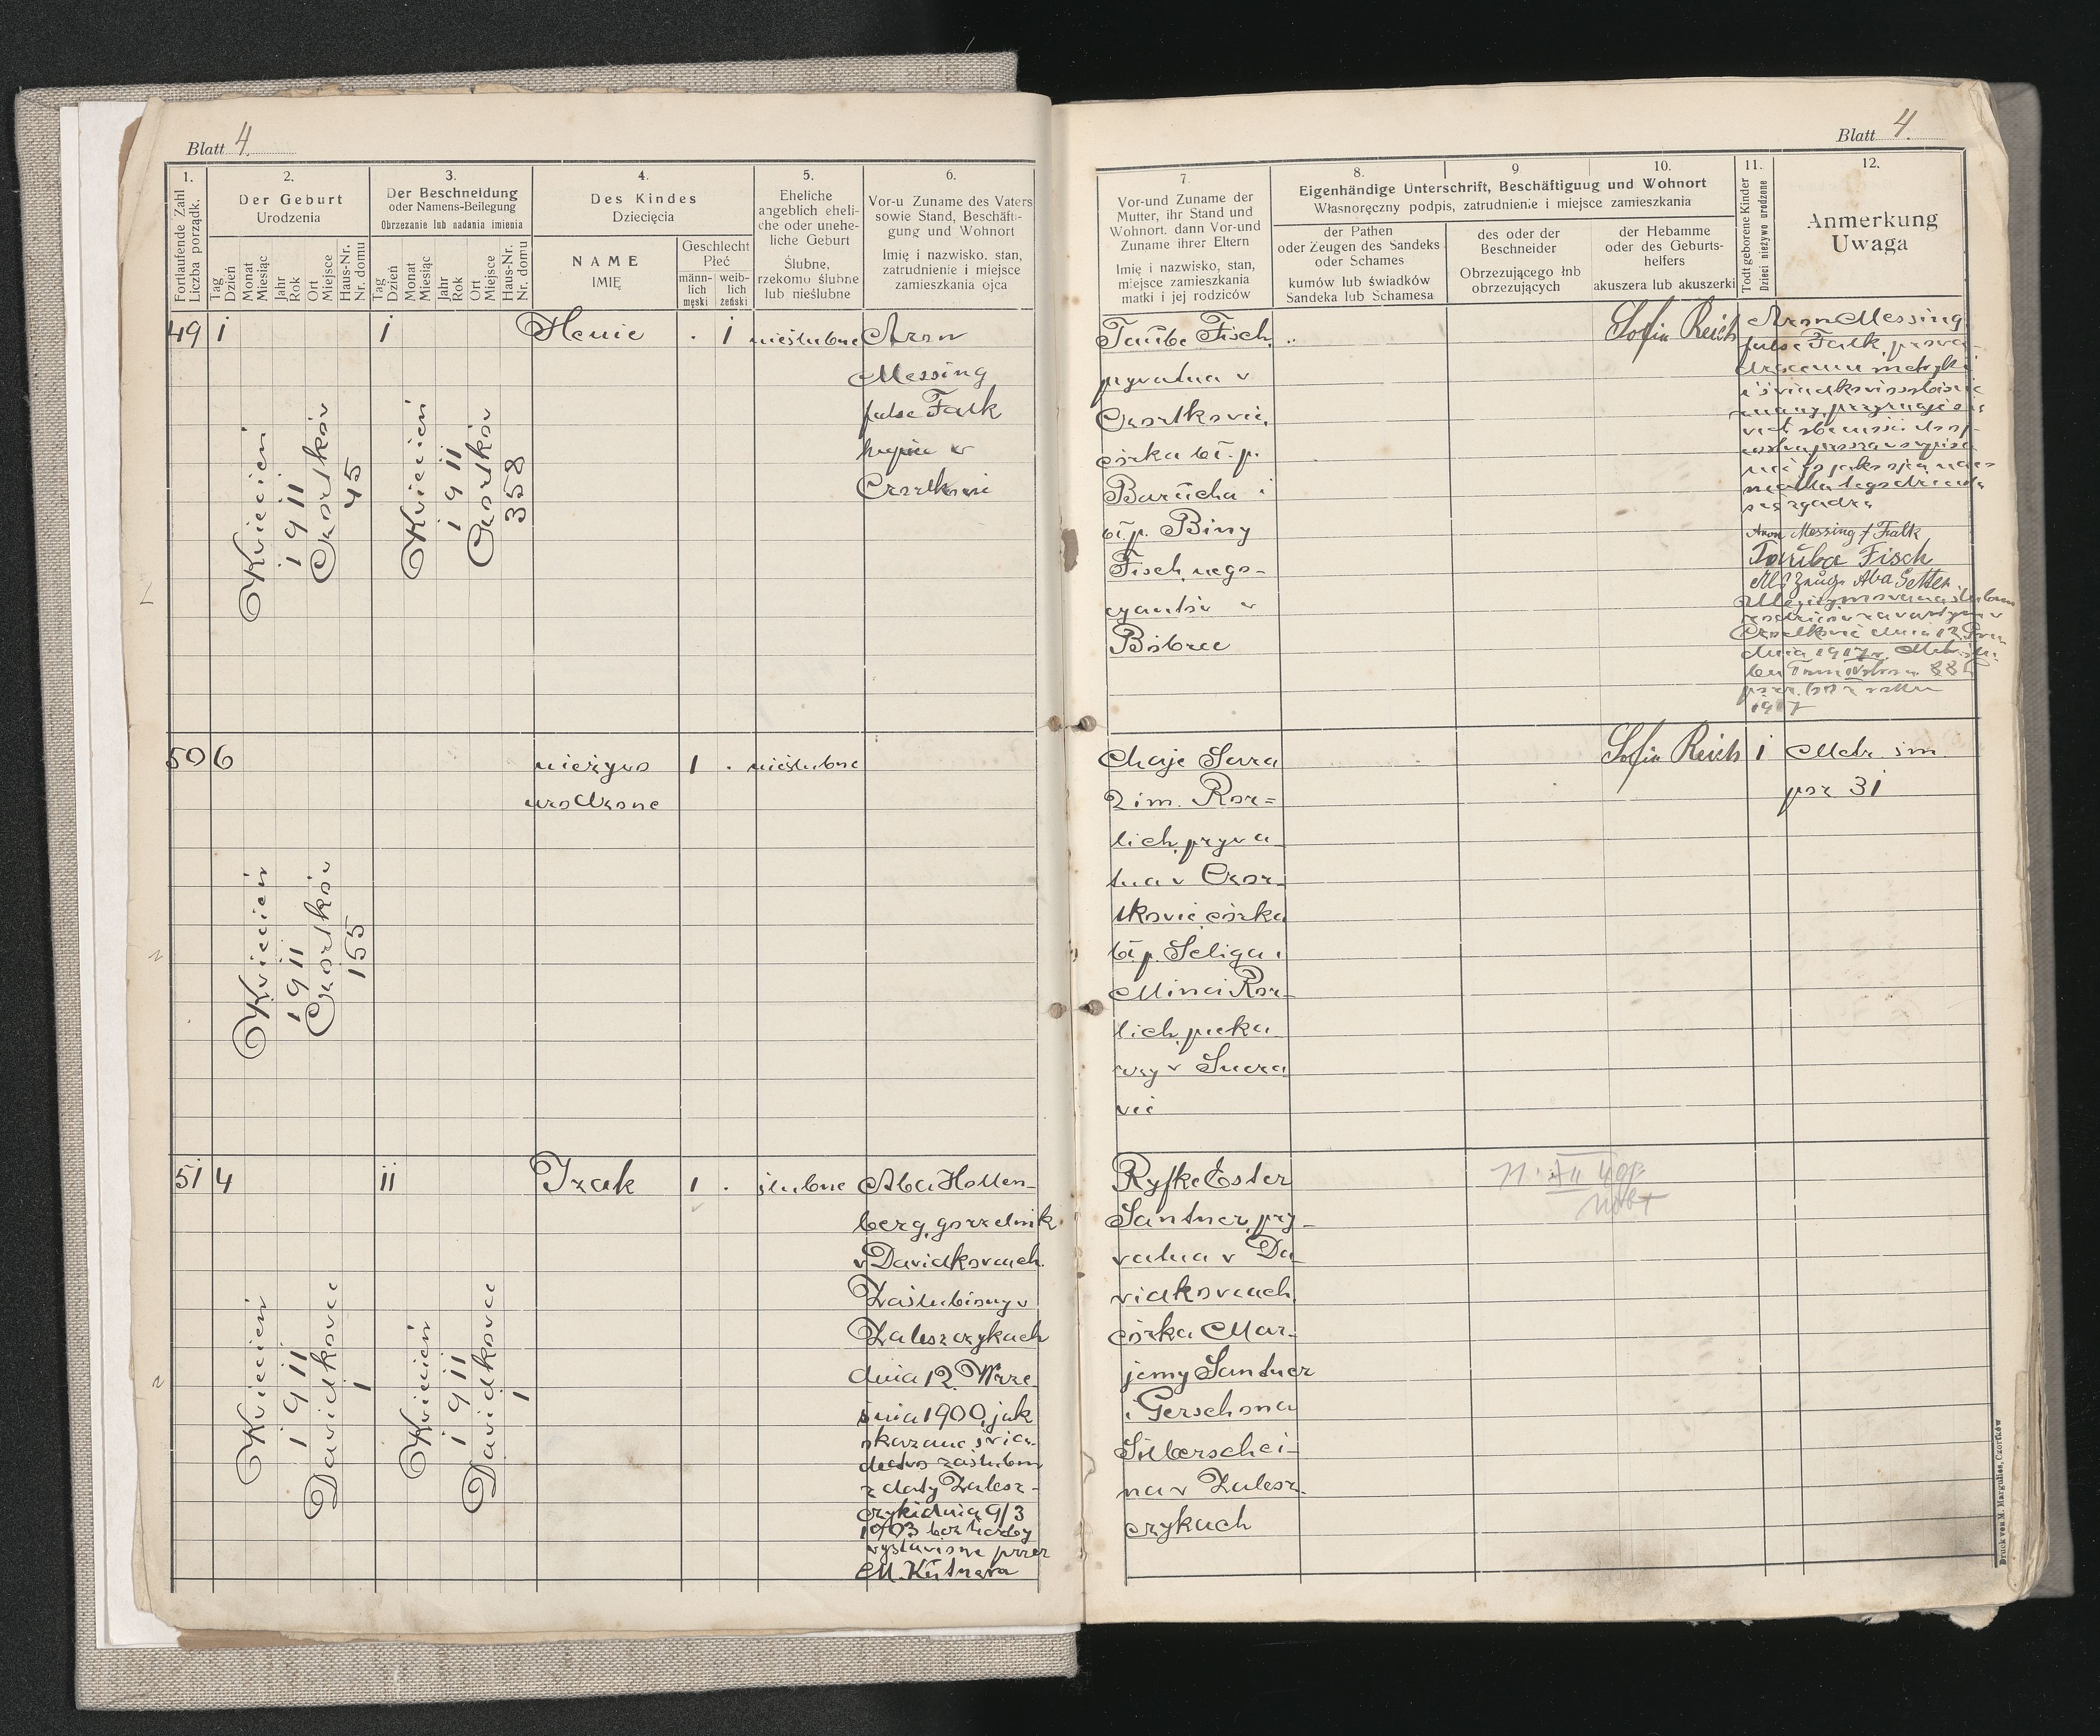 Blatt 4.
1.
Fortlaufende Zahl
Liczba porządk.
2.
Der Geburt
Urodzenia
Tag
Dzień
Monat
Miesiąc
Jahr
Rok
Ort
Miejsce
Haus-Nr.
Nr. domu
3.
Der Beschneidung
oder Namens-Beilegung
Obrzezanie lub nadania imienia
Tag
Dzień
Monat
Miesiąc
Jahr
Rok
Ort
Miejsce
Haus-Nr.
Nr. domu
4.
Des Kindes
Dziecięcia
NAME
IMIĘ
Geschlecht
Płeć
männ-
lich
męski
weib-
lich
żeński
5.
Eheliche
angeblich eheli-
che oder unehe-
liche Geburt
Ślubne,
rzekomo ślubne
lub nieślubne
6.
Vor-u Zuname des Vaters
sowie Stand, Beschäfti-
gung und Wohnort
Imię i nazwisko. stan,
zatrudnienie i miejsce
zamieszkania ojca
49
1
Kwiecień
1911
Czortków
45
1
Kwiecień
1911
Czortków
358
Henie
.
1
nieślubne
Aron
Messing
false Falk
kupiec w
Czortkowie
50
6
Kwiecień
1911
Czortków
155
nieżywo
urodzone
1
.
nieślubne
51
4
Kwiecień
1911
Dawidkowce
1
11
Kwiecień
1911
Dawidkowce
1
Izak
1
.
ślubne
Aba Hollen-
berg, gorzelnik
w Dawidkowcach.
Zaślubiony w
Zaleszczykach
dnia 12. Wrze-
śnia 1900, jak
okazane świa-
dectwo zaślubin
z daty Zalesz-
czyki dnia 9/3
1903 bez liczby
wystawione przez
M. Kutnera
Blatt 4.
7.
Vor-und Zuname der
Mutter, ihr Stand und
Wohnort. dann Vor-und
Zuname ihrer Eltern
Imię i nazwisko, stan,
miejsce zamieszkania
matki i jej rodziców
Eigenhändige Unterschrift, Beschäftiguug und Wohnort
Własnoręczny podpis, zatrudnienie i miejsce zamieszkania
8.
der Pathen
oder Zeugen des Sandeks
oder Schames
kumów lub świadków
Sandeka lub Schamesa
9.
des oder der
Beschneider
Obrzezującego łnb
obrzezujących
10.
der Hebamme
oder des Geburts-
helfers
akuszera lub akuszerki
11.
Todt geborene Kinder
Dzieci nieżywo urodzone
12.
Anmerkung
Uwaga
Taube Fisch,
prywatna w
Czortkowie,
córka bł. p.
Barucha i
bł. p. Biny
Fisch, nego-
cyantów w
Bóbrce
Sofia Reich
Aron Messing
false Falk, prowa-
dzącemu metryki
Aron Messing f Falk
Tauba Fisch
Als Zeuge Aba
Czortkowie dnia 12. Gru-
dnia 1917 r.
1917
Chaje Sara
2 im. Ror-
lich, prywa-
tna w Czor-
tkowie, córka
bł. p. Seliga i
Minci Ror-
lich, pieka-
rzy w Sucza-
wie
Sofia Reich
1
Metr. śm.
poz 31
Ryfke Ester
Santner, pry-
watna w Da-
widkowcach,
córka Mar-
jemy Santner
i Gerschona
Silberschei-
na w Zalesz-
czykach
Druck von M. Margulies, Czortków